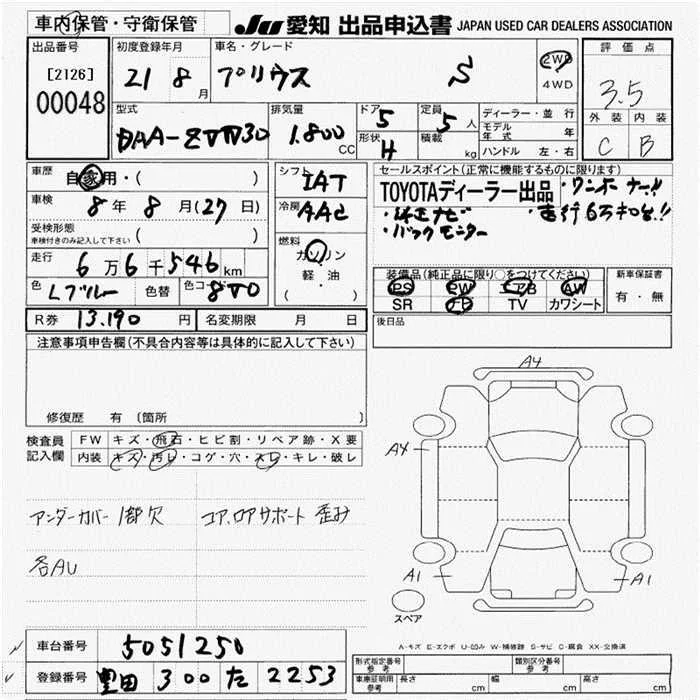 車内保管・守衛保管
JU 愛知 出品申込書 JAPAN USED CAR DEALERS ASSOCIATION
出品番号 [2126] 00048
初度登録年月 21 8 月
車名・グレード プリウス S
2WD
4WD
評価点 3.5
外装 内装
C B
型式 DAA-ZVW30
排気量 1.800 CC
ドア 5
形状 H
定員 5 人
積載 kg
ディーラー・並行
モデル年式 年
ハンドル 左・右
車歴 自家用・( )
車検 8 年 8 月(27 日)
受検形態 ( )
車検付きのみ記入して下さい
走行 6 万 6 千 546 km
色 Lブルー 色替 色コード 8V0
シフト IAT
冷房 AAC
燃料 ガソリン
軽・油
( )
セールスポイント(正常に機能するものに限ります)
TOYOTAディーラー出品 ・ワンオーナー!!
・純正ナビ ・走行6万キロ台!!
・バックモニター
装備品(純正品に限り○をつけてください)
PS PW エアB AW
SR ナビ TV カワシート
新車保証書
有・無
R券 13.190 円 名変期限 月 日
後日品
注意事項申告欄(不具合内容等は具体的に記入して下さい)
修復歴 有 〔箇所 〕
検査員記入欄
FW キズ・飛石・ヒビ割・リペア跡・X要
内装 キズ・汚レ・コゲ・穴・スレ・キレ・破レ
アンダーカバー 1部欠 コア、ロアサポート 歪み
各AU
A4
A4
A1
A1
スペア
A-キズ E-エクボ U-凹み W-補修跡 S-サビ C-腐食 XX-交換済
車台番号 5051250
登録番号 豊田 300 た 2253
形式指定番号 参考 類別区分番号 参考
車庫証明用 参考 長さ cm 幅 cm 高さ cm